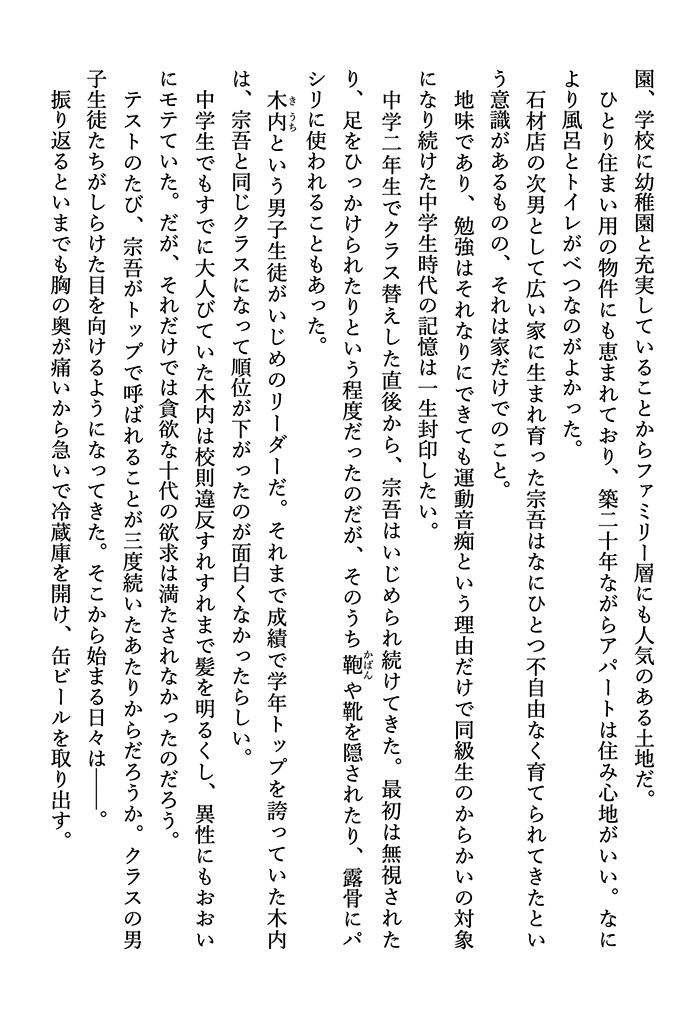 園、学校に幼稚園と充実していることからファミリー層にも人気のある土地だ。
　ひとり住まい用の物件にも恵まれており、築二十年ながらアパートは住み心地がいい。なに
より風呂とトイレがべつなのがよかった。
　石材店の次男として広い家に生まれ育った宗吾はなにひとつ不自由なく育てられてきたとい
う意識があるものの、それは家だけでのこと。
　地味であり、勉強はそれなりにできても運動音痴という理由だけで同級生のからかいの対象
になり続けた中学生時代の記憶は一生封印したい。
　中学二年生でクラス替えした直後から、宗吾はいじめられ続けてきた。最初は無視された
り、足をひっかけられたりという程度だったのだが、そのうち鞄や靴を隠されたり、露骨にパ
シリに使われることもあった。
　木内という男子生徒がいじめのリーダーだ。それまで成績で学年トップを誇っていた木内
は、宗吾と同じクラスになって順位が下がったのが面白くなかったらしい。
　中学生でもすでに大人びていた木内は校則違反すれすれまで髪を明るくし、異性にもおおい
にモテていた。だが、それだけでは貪欲な十代の欲求は満たされなかったのだろう。
　テストのたび、宗吾がトップで呼ばれることが三度続いたあたりからだろうか。クラスの男
子生徒たちがしらけた目を向けるようになってきた。そこから始まる日々は――。
　振り返るといまでも胸の奥が痛いから急いで冷蔵庫を開け、缶ビールを取り出す。